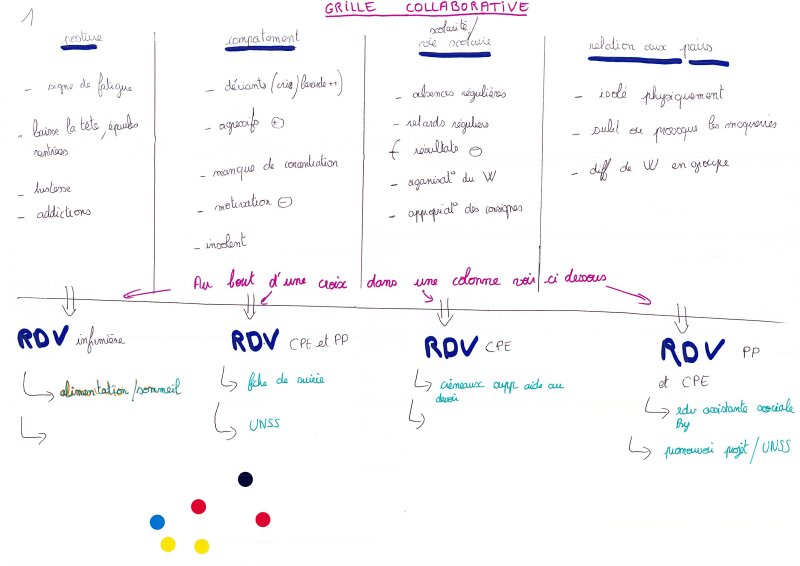 1
GRILLE COLLABORATIVE
posture
- signe de fatigue
- baisse la tête, épaules
rentrées
- tristesse
- addictions
comportement
- déviants (cris/ bavarde ++)
- agressifs ⊖
- manque de concentration
- motivation ⊖
- insolent
scolarité/
vie scolaire
- absences régulières
- retards réguliers
- résultats ⊖
- organisat° du W
- appropriat° des consignes
relation aux pairs
- isolé physiquement
- subit ou provoque les moqueries
- diff de W en groupe
Au bout d'une croix dans une colonne voir ci dessous
RDV infirmière
alimentation/sommeil
RDV CPE et PP
fiche de suivie
UNSS
RDV CPE
créneaux supp aide au
devoir
RDV PP
et CPE
rdv assistante sociale
Psy
promouvoir projet/UNSS